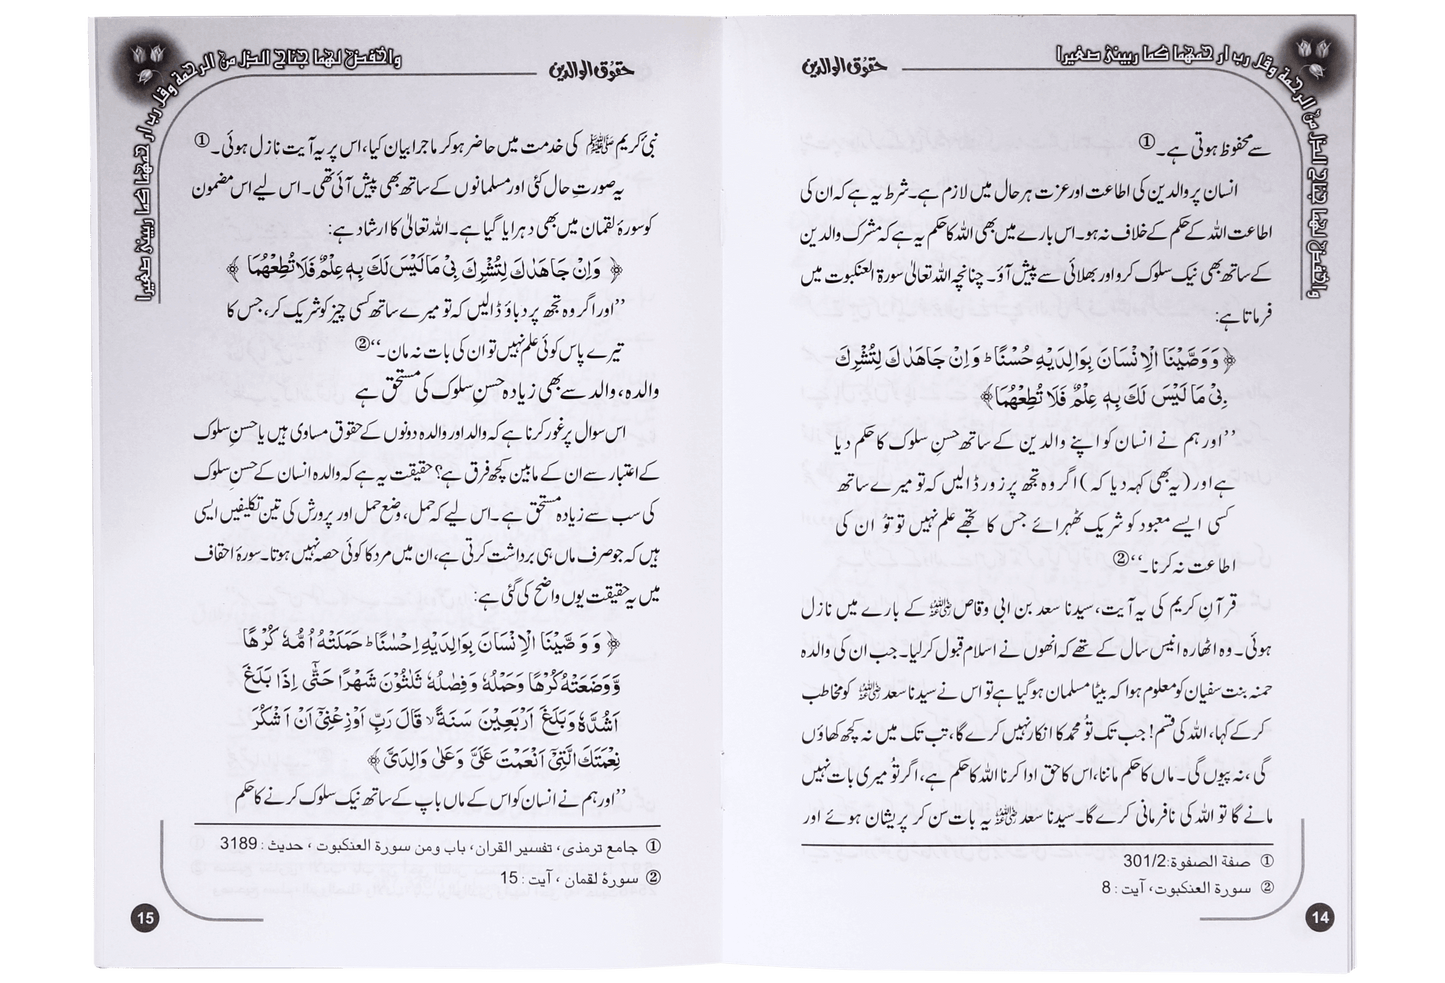 حقوق الوالدین
واخفض لهما جناح الذل من الرحمة وقل رب ارحمهما كما ربيني صغيرا
سے محفوظ ہوتی ہے۔①
انسان پر والدین کی اطاعت اور عزت ہر حال میں لازم ہے۔ شرط یہ ہے کہ ان کی
اطاعت اللہ کے حکم کے خلاف نہ ہو۔ اس بارے میں بھی اللہ کا حکم یہ ہے کہ مشرک والدین
کے ساتھ بھی نیک سلوک کرو اور بھلائی سے پیش آؤ۔ چنانچہ اللہ تعالیٰ سورۃ العنکبوت میں
فرماتا ہے:
﴿ وَوَصَّيْنَا الْاِنْسَانَ بِوَالِدَيْهِ حُسْنًا ؕ وَاِنْ جَاهَدٰكَ لِتُشْرِكَ
بِيْ مَا لَيْسَ لَكَ بِهٖ عِلْمٌ فَلَا تُطِعْهُمَا ﴾
’’اور ہم نے انسان کو اپنے والدین کے ساتھ حسنِ سلوک کا حکم دیا
ہے اور (یہ بھی کہہ دیا کہ) اگر وہ تجھ پر زور ڈالیں کہ تو میرے ساتھ
کسی ایسے معبود کو شریک ٹھہرائے جس کا تجھے علم نہیں تو تُو ان کی
اطاعت نہ کرنا۔‘‘②
قرآنِ کریم کی یہ آیت، سیدنا سعد بن ابی وقاص رضی اللہ عنہ کے بارے میں نازل
ہوئی۔ وہ اٹھارہ انیس سال کے تھے کہ انھوں نے اسلام قبول کر لیا۔ جب ان کی والدہ
حمنہ بنت سفیان کو معلوم ہوا کہ بیٹا مسلمان ہو گیا ہے تو اس نے سیدنا سعد رضی اللہ عنہ کو مخاطب
کر کے کہا، اللہ کی قسم! جب تک تُو محمد کا انکار نہیں کرے گا، تب تک میں نہ کچھ کھاؤں
گی، نہ پیوں گی۔ ماں کا حکم ماننا، اس کا حق ادا کرنا اللہ کا حکم ہے، اگر تُو میری بات نہیں
مانے گا تو اللہ کی نافرمانی کرے گا۔ سیدنا سعد رضی اللہ عنہ یہ بات سن کر پریشان ہوئے اور
① صفة الصفوة: 301/2
② سورة العنكبوت، آیت: 8
14
حقوق الوالدین
واخفض لهما جناح الذل من الرحمة وقل رب ارحمهما كما ربيني صغيرا
نبیٔ کریم ﷺ کی خدمت میں حاضر ہو کر ماجرا بیان کیا، اس پر یہ آیت نازل ہوئی۔①
یہ صورتِ حال کئی اور مسلمانوں کے ساتھ بھی پیش آئی تھی۔ اس لیے اس مضمون
کو سورۂ لقمان میں بھی دہرایا گیا ہے۔ اللہ تعالیٰ کا ارشاد ہے:
﴿ وَاِنْ جَاهَدٰكَ لِتُشْرِكَ بِيْ مَا لَيْسَ لَكَ بِهٖ عِلْمٌ فَلَا تُطِعْهُمَا ﴾
’’اور اگر وہ تجھ پر دباؤ ڈالیں کہ تو میرے ساتھ کسی چیز کو شریک کر، جس کا
تیرے پاس کوئی علم نہیں تو ان کی بات نہ مان۔‘‘②
والدہ، والد سے بھی زیادہ حسنِ سلوک کی مستحق ہے
اس سوال پر غور کرنا ہے کہ والد اور والدہ دونوں کے حقوق مساوی ہیں یا حسنِ سلوک
کے اعتبار سے ان کے مابین کچھ فرق ہے؟ حقیقت یہ ہے کہ والدہ انسان کے حسنِ سلوک
کی سب سے زیادہ مستحق ہے۔ اس لیے کہ حمل، وضع حمل اور پرورش کی تین تکلیفیں ایسی
ہیں کہ جو صرف ماں ہی برداشت کرتی ہے، ان میں مرد کا کوئی حصہ نہیں ہوتا۔ سورۂ احقاف
میں یہ حقیقت یوں واضح کی گئی ہے:
﴿ وَوَصَّيْنَا الْاِنْسَانَ بِوَالِدَيْهِ اِحْسٰنًا ؕ حَمَلَتْهُ اُمُّهٗ كُرْهًا
وَّوَضَعَتْهُ كُرْهًا وَحَمْلُهٗ وَفِصٰلُهٗ ثَلٰثُوْنَ شَهْرًا حَتّٰٓى اِذَا بَلَغَ
اَشُدَّهٗ وَبَلَغَ اَرْبَعِيْنَ سَنَةً ۙ قَالَ رَبِّ اَوْزِعْنِيْٓ اَنْ اَشْكُرَ
نِعْمَتَكَ الَّتِيْٓ اَنْعَمْتَ عَلَيَّ وَعَلٰى وَالِدَيَّ ﴾
’’اور ہم نے انسان کو اس کے ماں باپ کے ساتھ نیک سلوک کرنے کا حکم
① جامع ترمذی، تفسیر القران، باب ومن سورة العنكبوت، حدیث: 3189
② سورۂ لقمان، آیت: 15
15